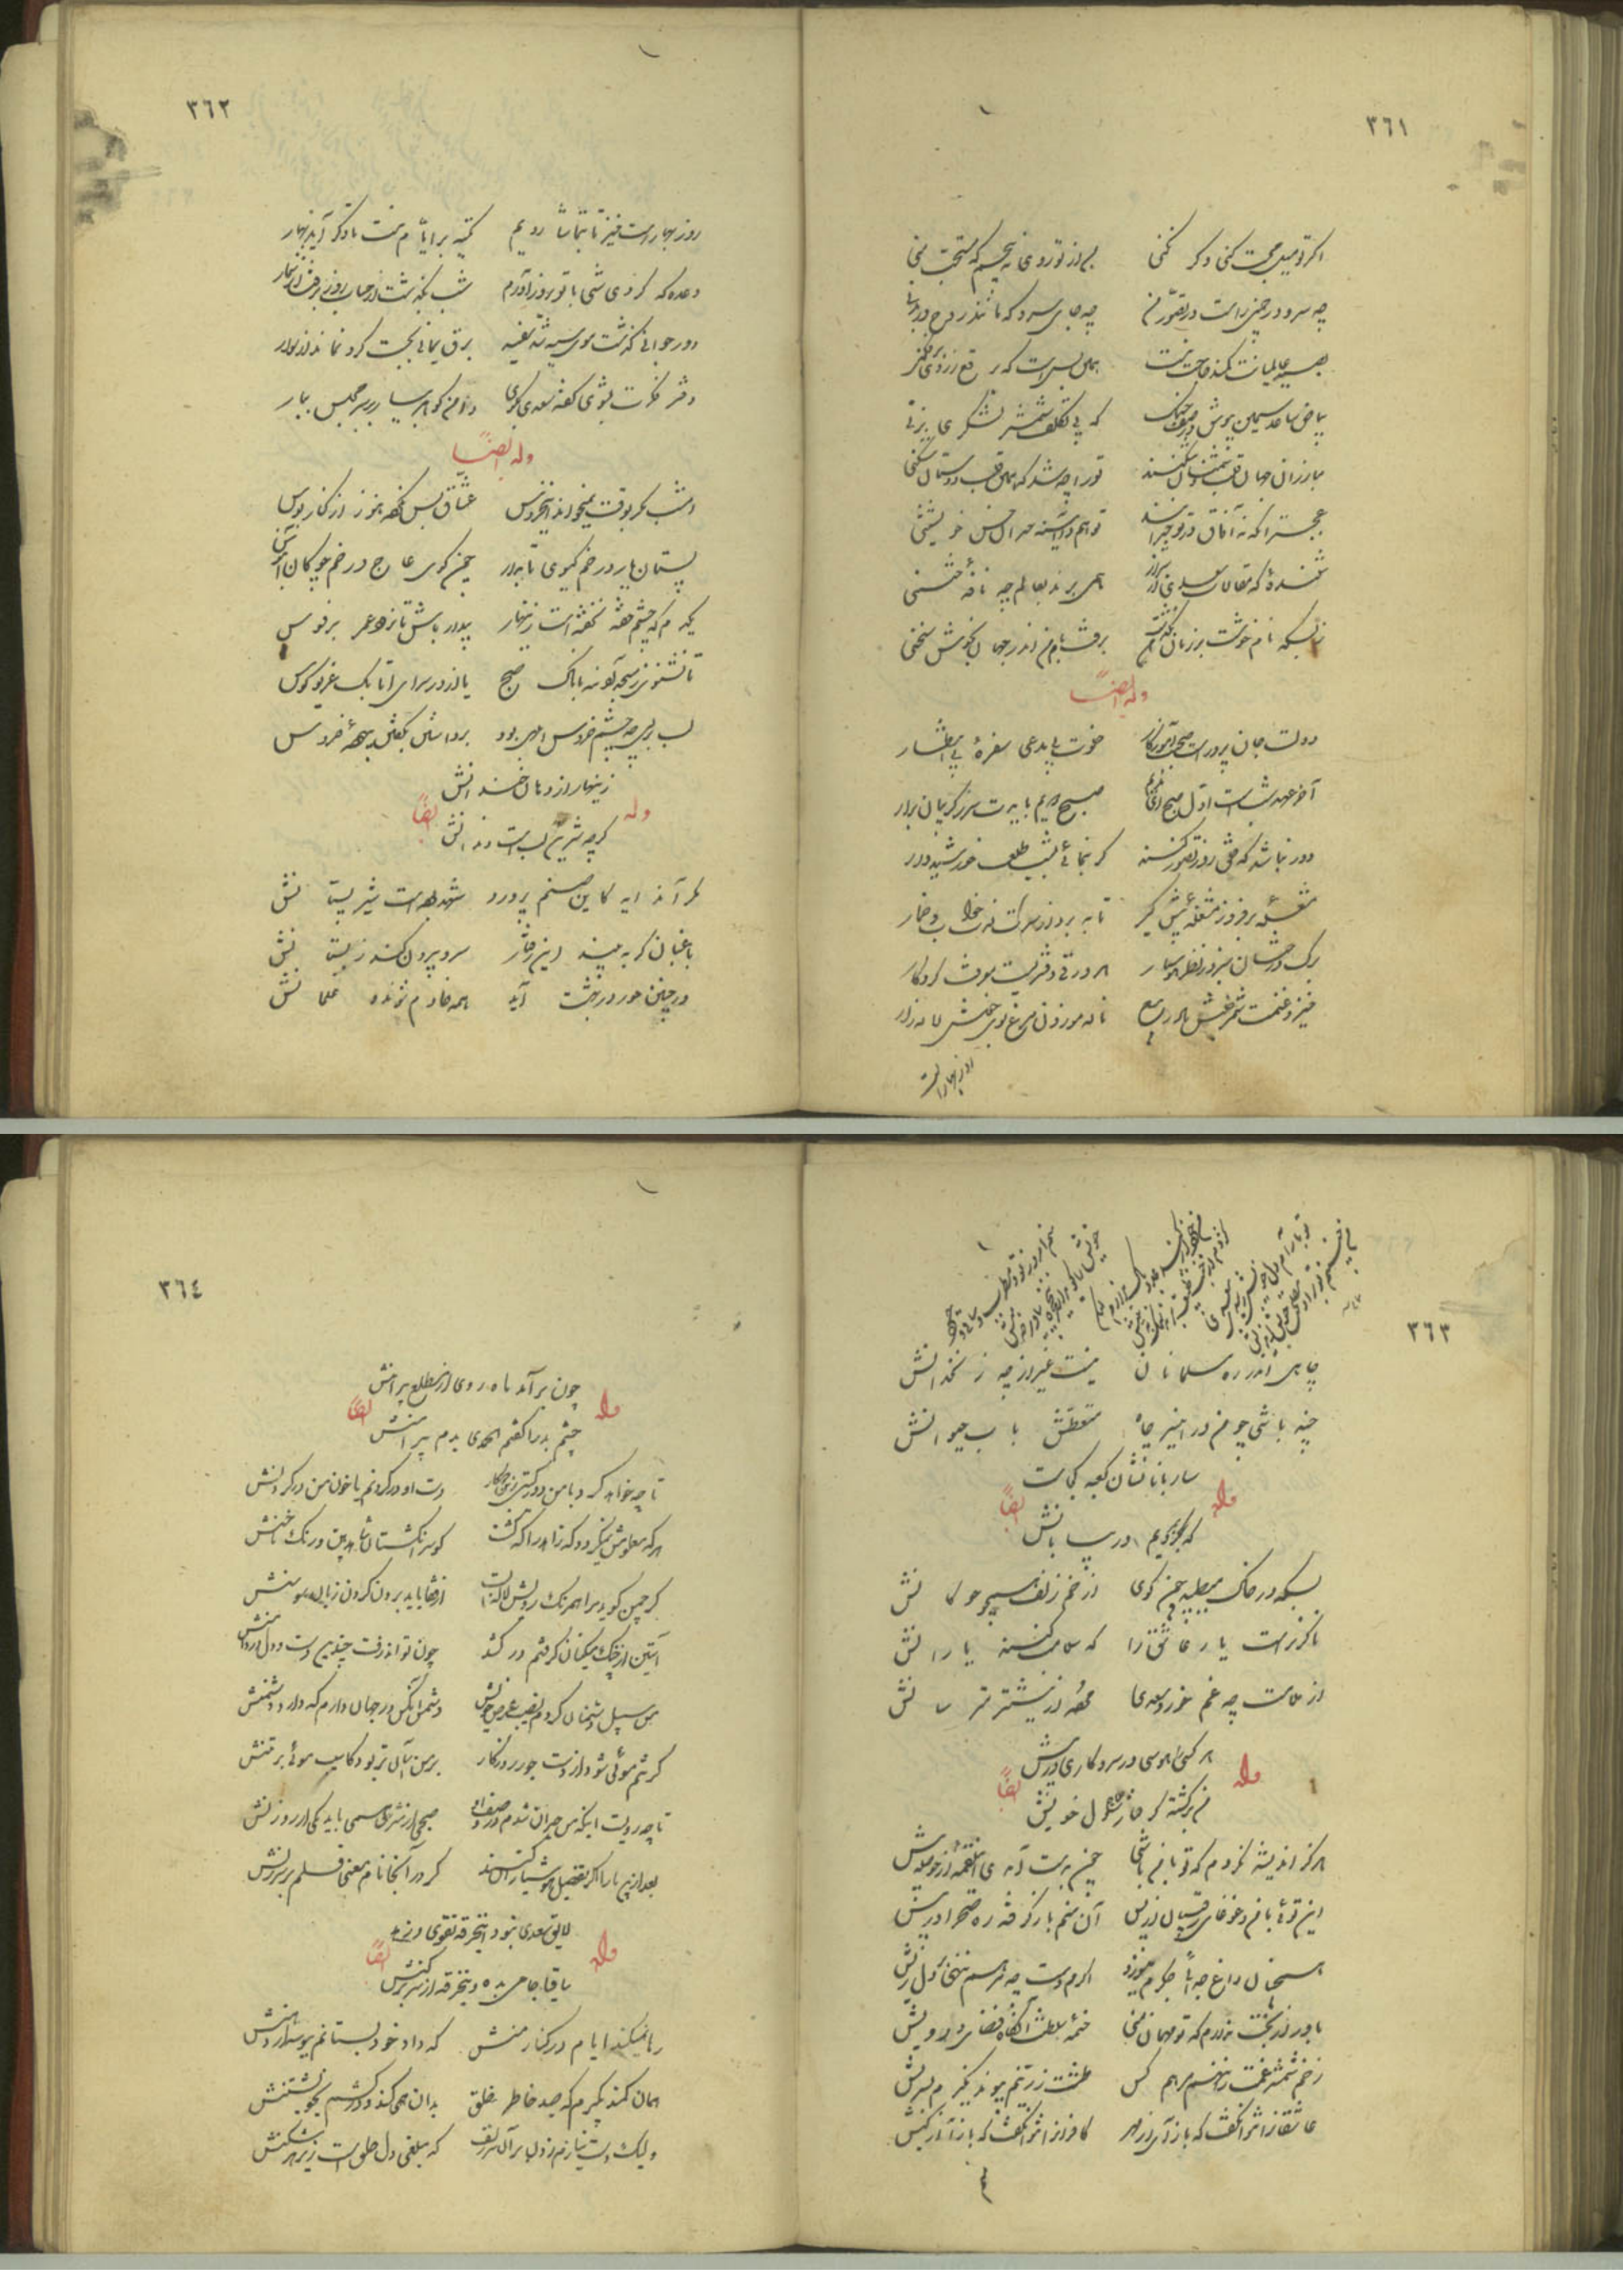 ٣٦١
اگر تو میل محبت کنی و گر نکنی
من از تو روی نپیچم که مستحب منی
چه سرو در چمنی راست در تصور من
چه جای سرو که مانند روح در بدنی
به صید عالمیانت کمند حاجت نیست
همین بس است که برقع ز روی برفکنی
بیاض ساعد سیمین مپوش در صف جنگ
که بی تکلف شمشیر لشکری بزنی
مبارزان جهان قلب دشمنان شکنند
تو را چه شد که همه قلب دوستان شکنی
عجب تر آنکه نه آفاق در تو حیرانند
تو هم در آینه حیران حسن خویشتنی
شنیده که مقالات سعدی از شیراز
همی برند به عالم چو نافه ختنی
ز بسکه نام خوشت بر زبان من بگذشت
برفت نام من اندر جهان بخوش سخنی
وله ایضاً
دولت جان پرور است صحبت آموزگار
خلوت بی مدعی سفره بی انتظار
آخر عهد شب است اول صبح ای ندیم
صبح دوم بایدت سر ز گریبان برآر
دور نباشد که خلق روز تصور کنند
گر بنمائی بشب طلعت خورشیدوار
مشعله برفروز مشغله پیش گیر
تا ببرد از سرت زحمت خواب و خمار
برگ درختان سبز در نظر هوشیار
هر ورقی دفتریست معرفت کردگار
خیز و غنیمت شمر جنبش باد ربیع
ناله موزون مرغ بوی خوش لاله زار
روز بهار است
٣٦٢
روز بهار است خیز تا بتماشا رویم
تکیه بر ایام نیست تا دگر آید بهار
وعده که کردی شبی با تو بروز آورم
شب بگذشت از حساب روز برفت از شمار
دور جوانی گذشت موی سیه پیسه
برق یمانی بجست گرد بماند از سوار
دفتر فکرت بشوی گفته سعدی بگوی
دامن گوهر بیار بر سر مجلس ببار
وله ایضاً
امشب مگر بوقت نمیخواند این خروس
عشاق بس نکرده هنوز از کنار و بوس
پستان یار در خم گیسوی تابدار
چون گوی عاج در خم چوگان آبنوس
یکدم که چشم فتنه بخفته است زینهار
بیدار باش تا نرود عمر بر فسوس
تا نشنوی ز مسجد آدینه بانگ صبح
یا از در سرای اتابک غریو کوس
لب بر لبی چو چشم خروس ابلهی بود
برداشتن بگفتن بیهوده خروس
زینهار از دهان خندانش
وله ایضاً
گرچه شیرین لب است دندانش
مگر آن دایه کاین صنم پرورد
شهد بوده است شیر پستانش
باغبان گر ببیند این رفتار
سرو بیرون کند ز بستانش
ور چنین حور در بهشت آید
همه خادم شوند غلمانش
٣٦٣
چاهی اندر ره مسلمانان
نیست غیر از چه زنخدانش
چند باشی چو من در این چاه
متعطش بآب حیوانش
ساربانا نشان کعبه کجاست
وله ایضاً
که بمردیم در بیابانش
بسکه در خاک میطپد چون گوی
از خم زلف همچو چوگانش
ناگزیر است یار عاشق را
که ملامت کنند یارانش
از ملامت چه غم خورد سعدی
مرده از نیشتر مترسانش
هر کسی را هوسی در سر و کاری در پیش
وله ایضاً
من سرگشته گرفتار دل خویش
هرگز اندیشه نکردم که تو با من باشی
چون بدست آمدی ای لقمه از حوصله بیش
این توئی با من و غوغای رقیبان از پس
آن منم با تو گرفته ره صحرا در پیش
همچنان داغ جدائی جگرم میسوزد
مگرم دست چو مرهم بنهی بر دل ریش
باور از بخت ندارم که تو مهمان منی
خیمه سلطنت آنگاه فضای درویش
زخم شمشیر غمت را نهم مرهم کس
طشت زرینم و پیوند نگیرم بسریش
عاشقان را نتوان گفت که باز آی از مهر
کافران را نتوان گفت که باز آ از کیش
٣٦٤
چون برآمد ماه روی از مطلع پیراهنش
وله ایضاً
چشم بد را گفتم الحمدی بدم پیرامنش
تا چه خواهد کرد با من دور گیتی زین دو کار
دست او در گردنم یا خون من در گردنش
هر که معلومش نمیگردد که زاهد را که کشت
گو سر انگشتان شاهد بین و رنگ ناخنش
گر چمن گوید مرا همرنگ رویش لاله است
از قفا باید برون کردن زبان سوسنش
آستین از چنگ مسکینان گرفتم درکشد
چون تواند رفت چندین دست دل در دامنش
من سبیل دشمنان کردم نصیب عرض خویش
دشمن آنکس در جهان دارم که دارد دشمنش
گر تنم موئی شود از دست جور روزگار
بر من آسانتر بود کآسیب موئی بر تنش
تا چه رویست اینکه من حیران شدم در وصف او
صبحی از مشرق همی تابد یکی از روزنش
بعد از این ما را اگر تفضیل هوشیاران نهند
گر در آنجا نام معنی قلم بر سر زنش
لایق سعدی نبود این خرقه تقوی و زهد
وله ایضاً
ساقیا جامی بده وین خرقه از سر برکنش
رها نمیکند ایام در کنار منش
که داد خود بستانم ببوسه از دهنش
همان کمند بگیرم که صید خاطر خلق
بدان همی کند و درکشم بخویشتنش
ولیک دست نیارم زدن در آن سر زلف
که مبلغی دل خلق است زیر هر شکنش